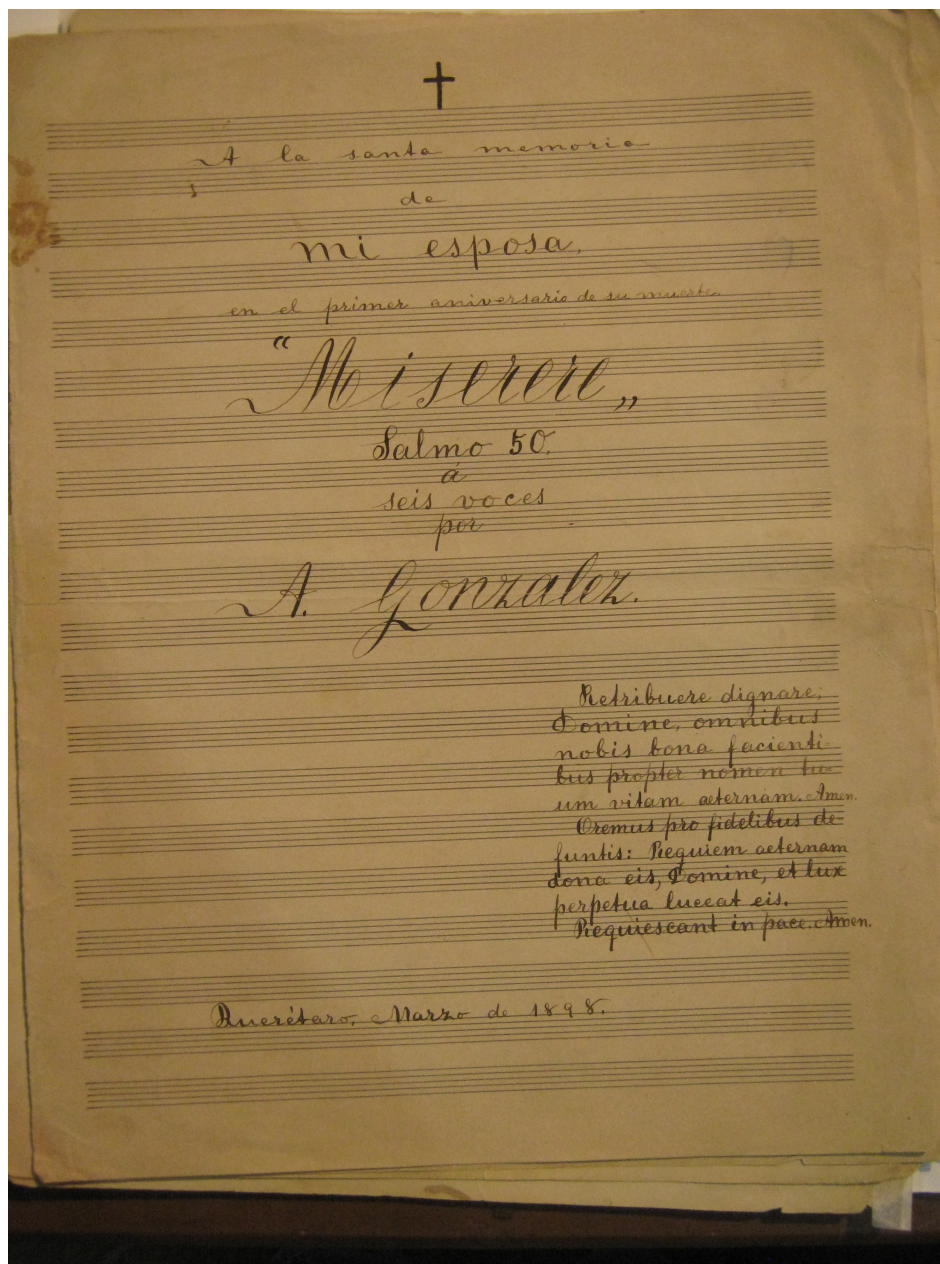 A la santa memoria
de
mi esposa,
en el primer aniversario de su muerte.
“Miserere„
Salmo 50.
á
seis voces
por
A. Gonzalez.
Retribuere dignare,
Domine, omnibus
nobis bona facienti-
bus propter nomen tu-
um vitam aeternam. Amen.
Oremus pro fidelibus de-
funtis: Requiem aeternam
dona eis, Domine, et lux
perpetua luceat eis.
Requiescant in pace. Amen.
Querétaro, Marzo de 1898.